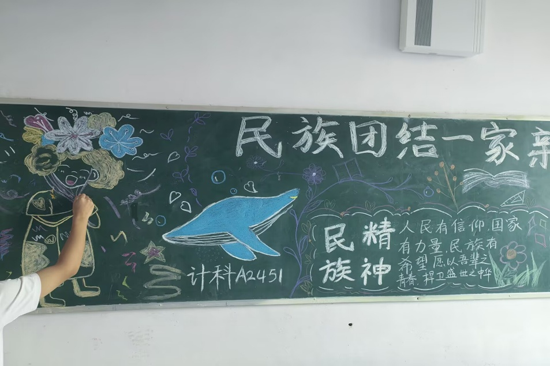 民族团结一家亲
计科A2451
民族
精神
人民有信仰.国家
有力量.民族有
希望.愿以吾辈之
青春.捍卫盛世之中华